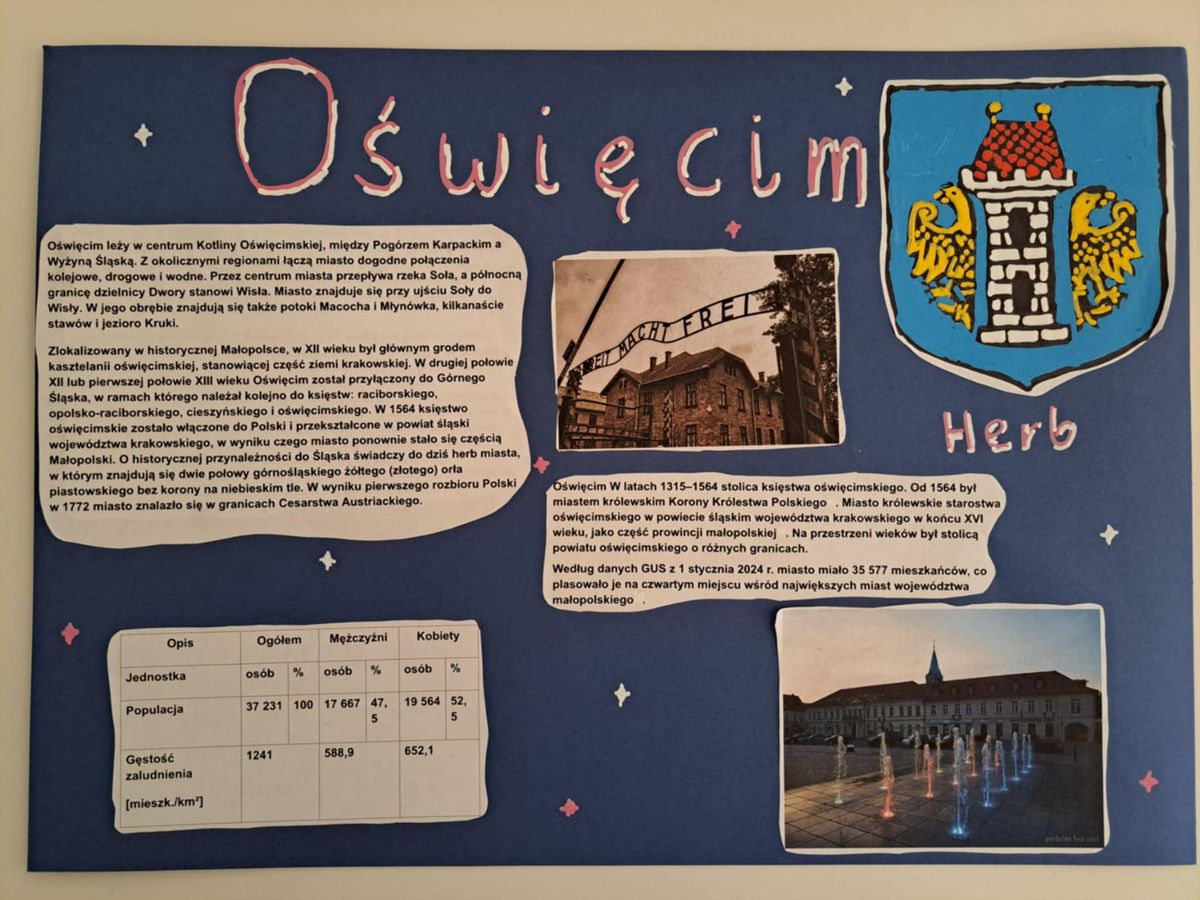 Oświęcim
Oświęcim leży w centrum Kotliny Oświęcimskiej, między Pogórzem Karpackim a
Wyżyną Śląską. Z okolicznymi regionami łączą miasto dogodne połączenia
kolejowe, drogowe i wodne. Przez centrum miasta przepływa rzeka Soła, a północną
granicę dzielnicy Dwory stanowi Wisła. Miasto znajduje się przy ujściu Soły do
Wisły. W jego obrębie znajdują się także potoki Macocha i Młynówka, kilkanaście
stawów i jezioro Kruki.
Zlokalizowany w historycznej Małopolsce, w XII wieku był głównym grodem
kasztelanii oświęcimskiej, stanowiącej część ziemi krakowskiej. W drugiej połowie
XII lub pierwszej połowie XIII wieku Oświęcim został przyłączony do Górnego
Śląska, w ramach którego należał kolejno do księstw: raciborskiego,
opolsko-raciborskiego, cieszyńskiego i oświęcimskiego. W 1564 księstwo
oświęcimskie zostało włączone do Polski i przekształcone w powiat śląski
województwa krakowskiego, w wyniku czego miasto ponownie stało się częścią
Małopolski. O historycznej przynależności do Śląska świadczy do dziś herb miasta,
w którym znajdują się dwie połowy górnośląskiego żółtego (złotego) orła
piastowskiego bez korony na niebieskim tle. W wyniku pierwszego rozbioru Polski
w 1772 miasto znalazło się w granicach Cesarstwa Austriackiego.
ARBEIT MACHT FREI
Herb
Oświęcim W latach 1315–1564 stolica księstwa oświęcimskiego. Od 1564 był
miastem królewskim Korony Królestwa Polskiego . Miasto królewskie starostwa
oświęcimskiego w powiecie śląskim województwa krakowskiego w końcu XVI
wieku, jako część prowincji małopolskiej . Na przestrzeni wieków był stolicą
powiatu oświęcimskiego o różnych granicach.
Według danych GUS z 1 stycznia 2024 r. miasto miało 35 577 mieszkańców, co
plasowało je na czwartym miejscu wśród największych miast województwa
małopolskiego .
Opis Ogółem Mężczyźni Kobiety
Jednostka osób % osób % osób %
Populacja 37 231 100 17 667 47,5 19 564 52,5
Gęstość zaludnienia [mieszk./km²] 1241 588,9 652,1